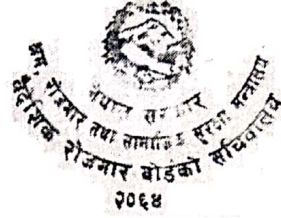 नेपाल सरकार
श्रम, रोजगार तथा सामाजिक सुरक्षा मन्त्रालय
वैदेशिक रोजगार बोर्डको सचिवालय
२०६४